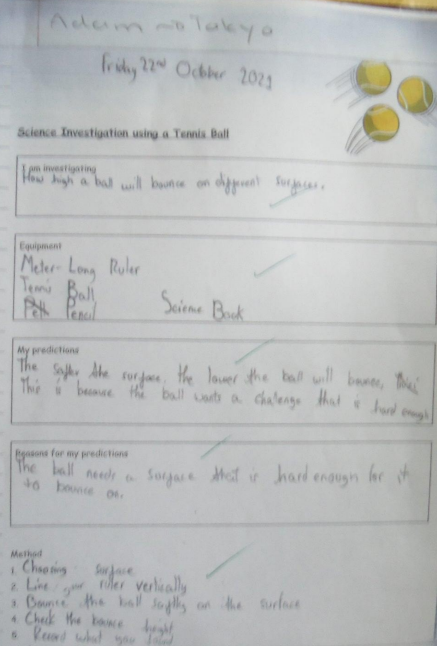 Adam
Friday 22nd October 2021
Science Investigation using a Tennis Ball
I am investigating
How high a ball will bounce on different surfaces.
Equipment
Meter-Long Ruler
Tennis Ball
Pencil Science Book
My predictions
The softer the surface, the lower the ball will bounce,
This is because the ball wants a chalenge that is hard enough
Reasons for my predictions
The ball needs a surface that is hard enough for it
to bounce on.
Method
1. Choosing surface
2. Line your ruler vertically
3. Bounce the ball softly on the surface
4. Check the bounce height
5. Record what you